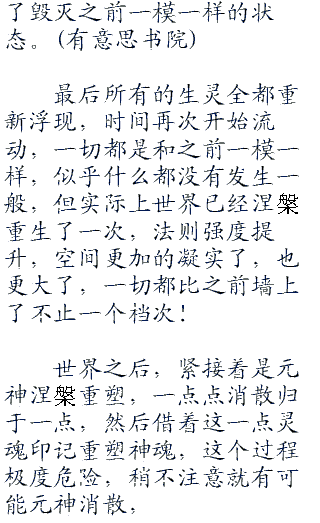 了毁灭之前一模一样的状
态。(有意思书院)
最后所有的生灵全都重
新浮现，时间再次开始流
动，一切都是和之前一模一
样，似乎什么都没有发生一
般，但实际上世界已经涅槃
重生了一次，法则强度提
升，空间更加的凝实了，也
更大了，一切都比之前墙上
了不止一个档次！
世界之后，紧接着是元
神涅槃重塑，一点点消散归
于一点，然后借着这一点灵
魂印记重塑神魂，这个过程
极度危险，稍不注意就有可
能元神消散，